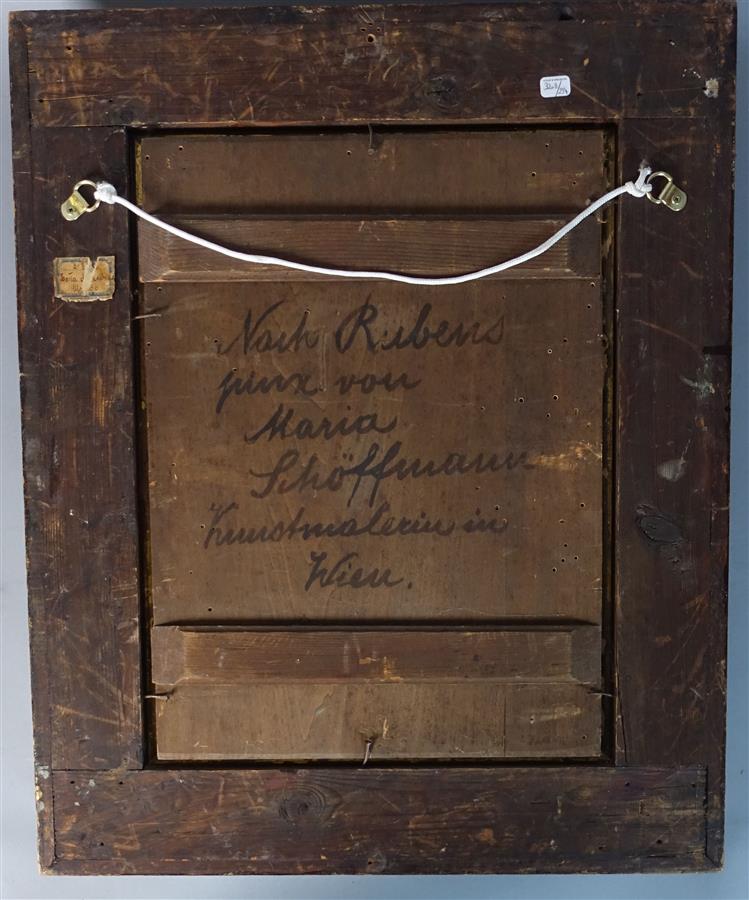 Nach Rubens
pinx. von
Maria
Schöffmann
Kunstmalerin in
Wien.